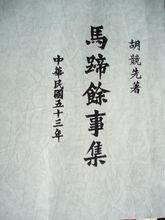 胡競先著
馬蹄餘事集
中華民國五十三年